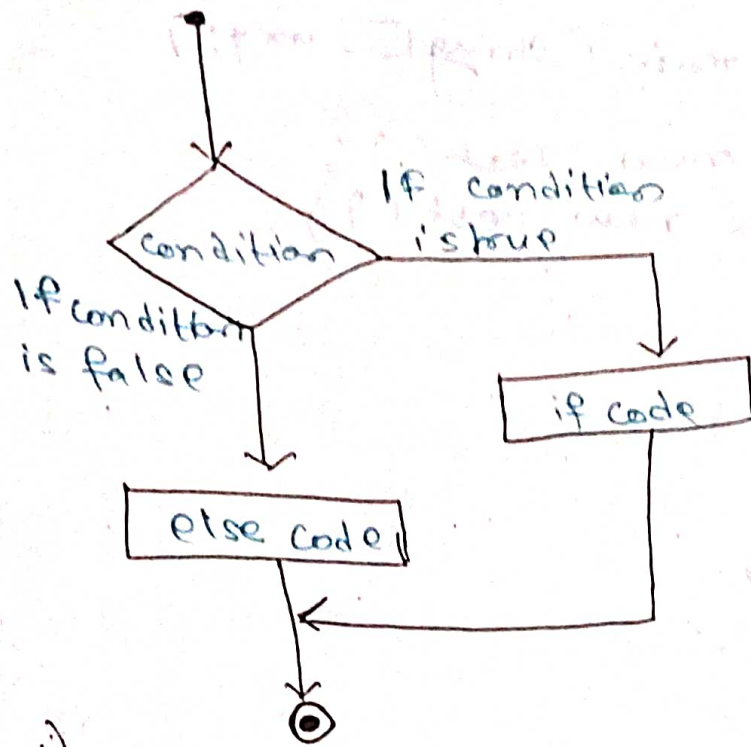 If condition
is true
condition
If condition
is false
if code
else code
i)